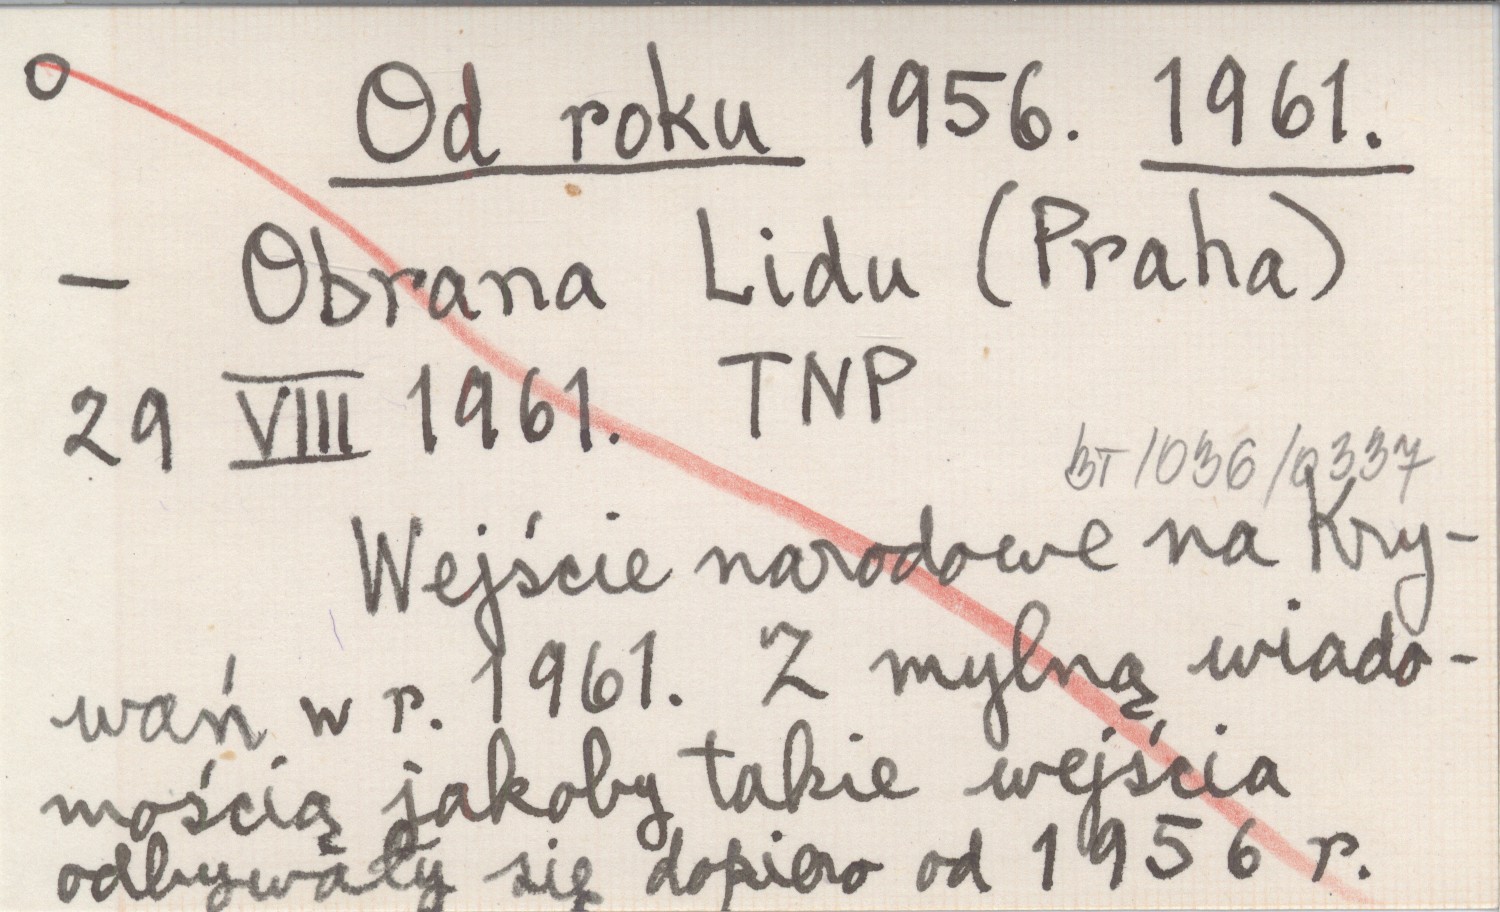 Od roku 1956. 1961.
– Obrana Lidu (Praha)
29 VIII 1961. TNP
BT/036/0337
Wejście narodowe na Kry-
wań w r. 1961. Z mylną wiado-
mością jakoby takie wejścia
odbywały się dopiero od 1956 r.